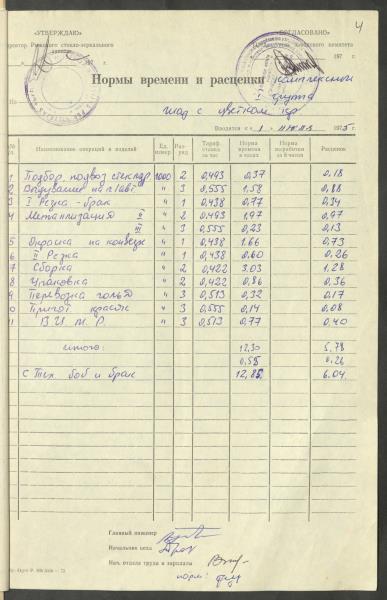 4
«УТВЕРЖДАЮ» «СОГЛАСОВАНО»
197 г. комитета 197
Нормы времени и расценки комплексной
На группа
шар с цветком
Вводятся с «1» 1975 г.
№ Наименование операций и изделий Ед. измер. Раз-ряд Тариф. ставка за час Норма времени в часах Норма выработки за 8 часов Расценок
1 Подбор, подвоз стеклодр. 1000 2 0,493 0,37 0,18
2 Выдувание на п/авт. " 3 0,555 1.58 0,88
3 I Резка - брак " 1 0,438 0,77 0,34
4 Метализация II " 2 0,493 1,97 0,97
III " 3 0,555 0,23 0,13
5 Окраска на конвейе " 1 0,438 1.66 0,73
6 II Резка " 1 0,438 0,60 0,26
7 Сборка " 2 0,422 3.03 1.28
8 Упаковка " 2 0,422 0,86 0,36
9 Перевозка " 4 0,513 0,32 0,17
0 Пригот красок " 3 0,555 0,14 0,08
" 3 0,513 0,77 0,40
итого: 12,30 5,78
0,55 0,26
С Тех. боб и брак 12,85 6.04
Главный инженер
Начальник цеха
Нач. отдела труда и зарплаты
норм: